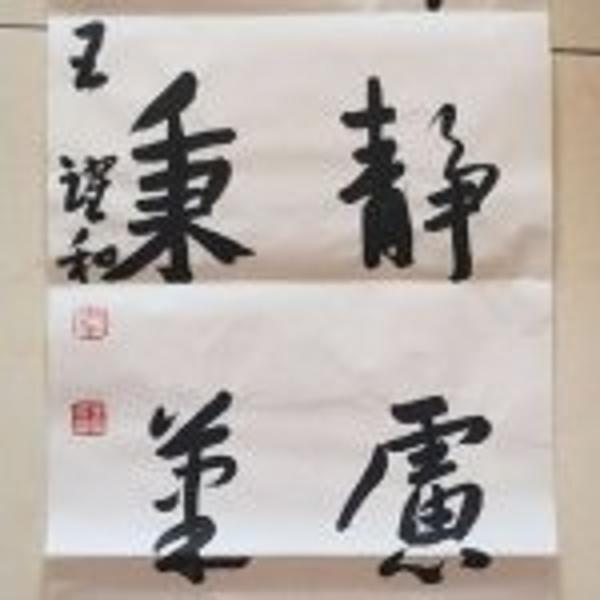 静慮
秉筆
王 和